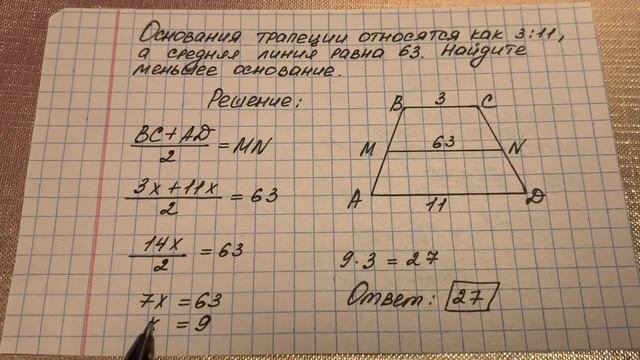 Основания трапеции относятся как 3:11,
а средняя линия равна 63. Найдите
меньшее основание.
Решение:
BC+AD
2
= MN
3x+11x
2
= 63
14x
2
= 63
7x = 63
x = 9
B 3 C
M 63 N
A 11 D
9·3 = 27
Ответ: 27